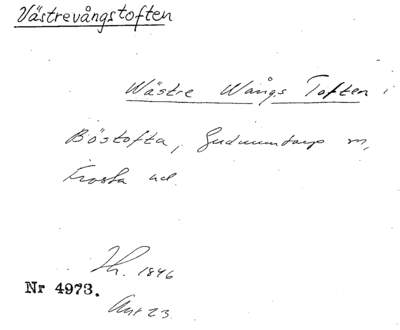 Västrevångstoften
Wästre Wångs Toften i
Böstofta, Gudmuntorp sn,
Frosta hd.
Th. 1846
Nr 4973.
Akt 23.